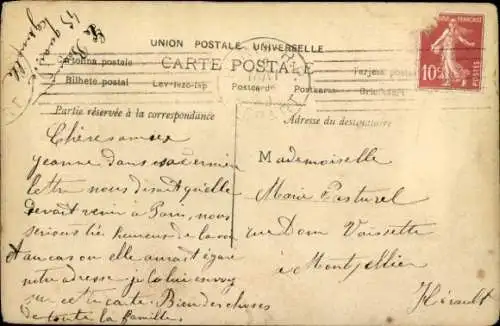 UNION POSTALE UNIVERSELLE
CARTE POSTALE
Postale
Bilhete postal
Lev-lezo-lap
Postcard
Postkarte
Partie réservée à la correspondance
Adresse du destinataire
10
POSTES
Chères amies
Jeanne dans sa dernière
lettre nous disait qu'elle
devait venir à Paris, nous
serions heureux de la voir
Au cas ou elle aurait égaré
notre adresse je la lui envoy
sur cette carte. Bien des choses
de toute la famille.
Mademoiselle
Marie Pasturel
rue Dom Vaissette
à Montpellier
Hérault